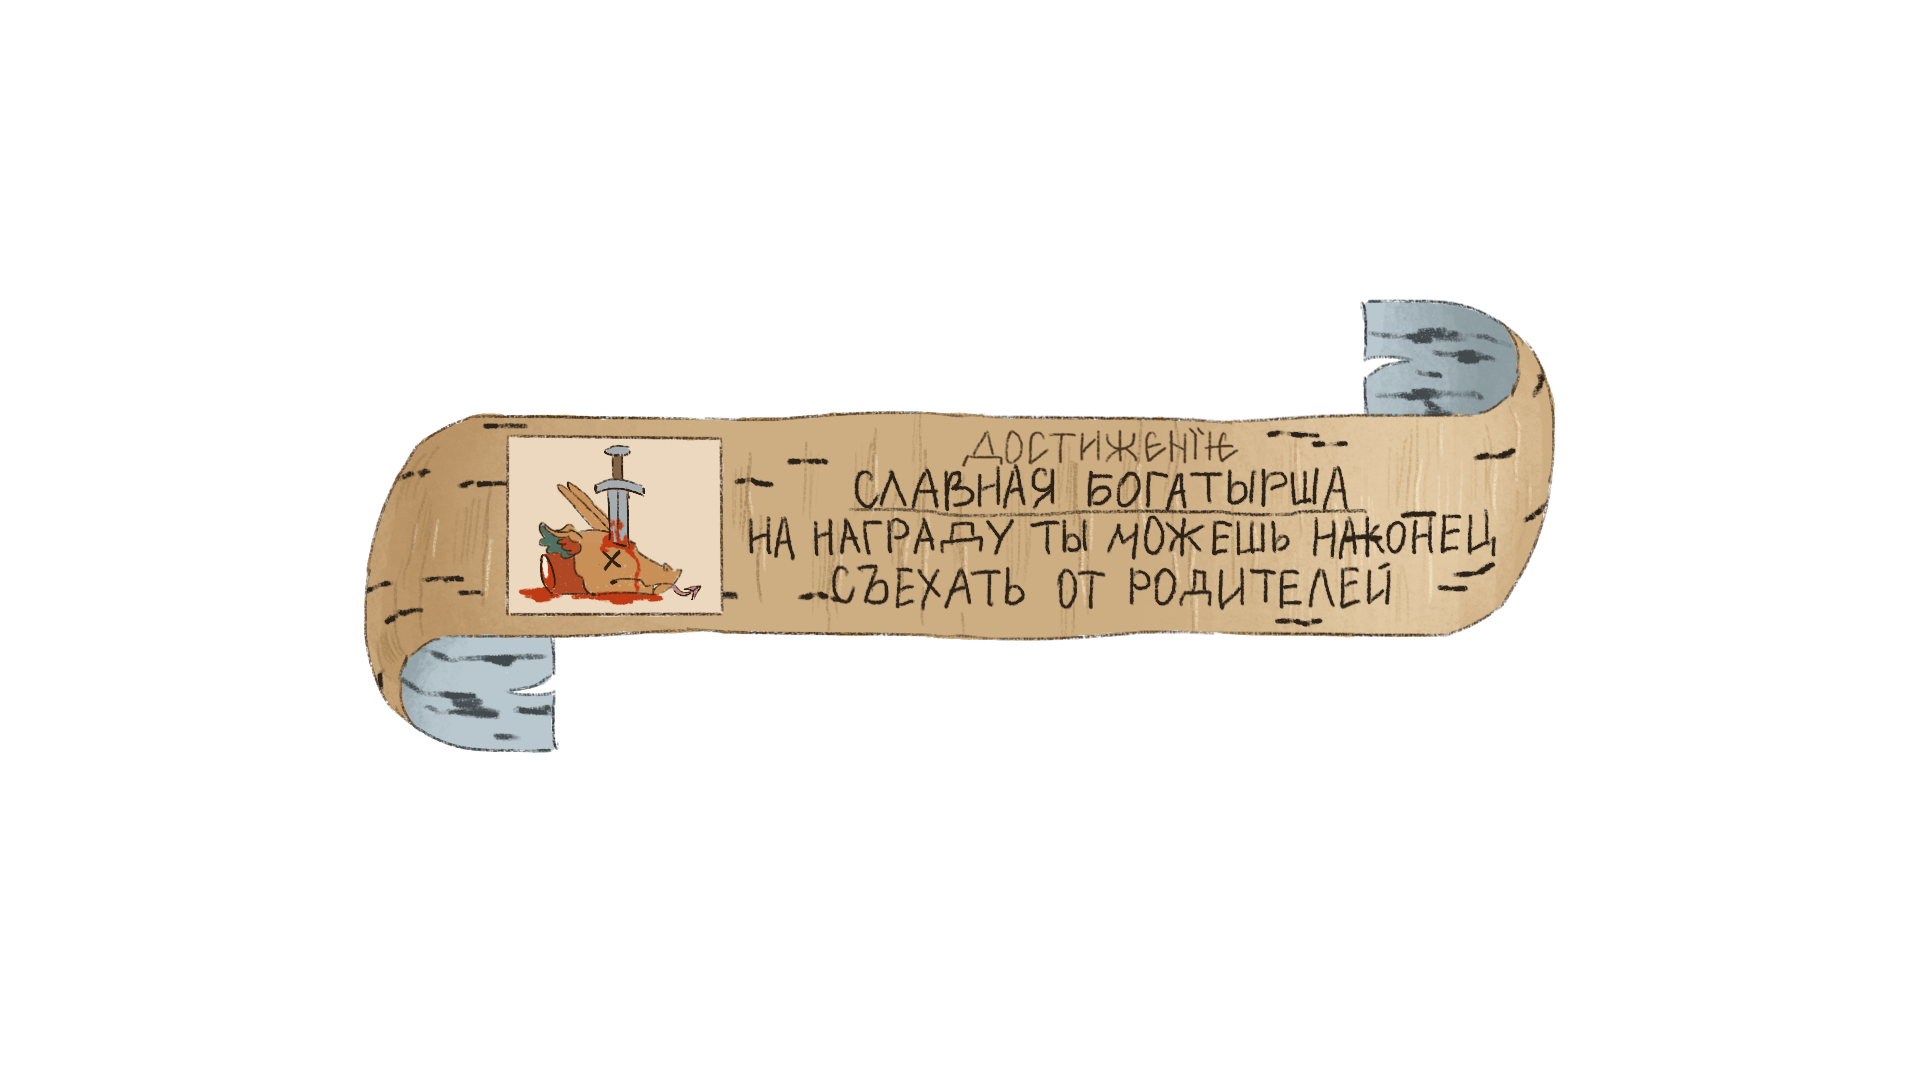 ДОСТИЖЕНЇѤ
СЛАВНАЯ БОГАТЫРША
НА НАГРАДУ ТЫ МОЖЕШЬ НАКОНЕЦ
СЪЕХАТЬ ОТ РОДИТЕЛЕЙ